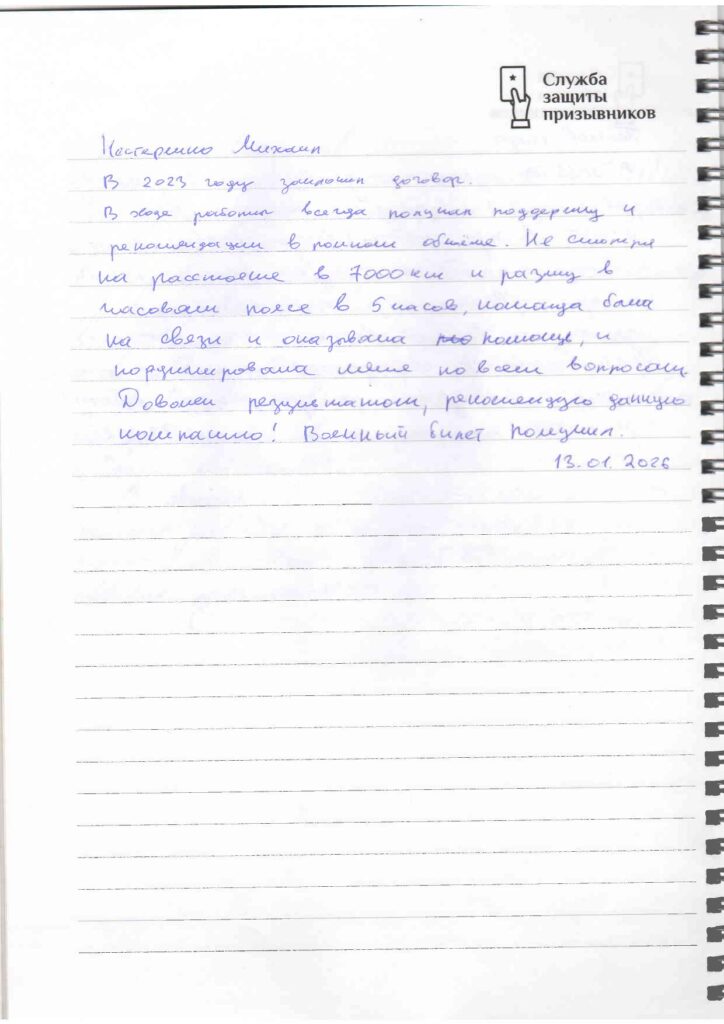 Служба
защиты
призывников
Нестеренко Михаил
В 2023 году заключил договор.
В ходе работы всегда получал поддержку и
рекомендации в полном объёме. Не смотря
на расстояние в 7000 км и разницу в
часовом поясе в 5 часов, команда была
на связи и оказывала помощь, и
координировала меня по всем вопросам
Доволен результатом, рекомендую данную
компанию! Военный билет получил.
13.01.2026